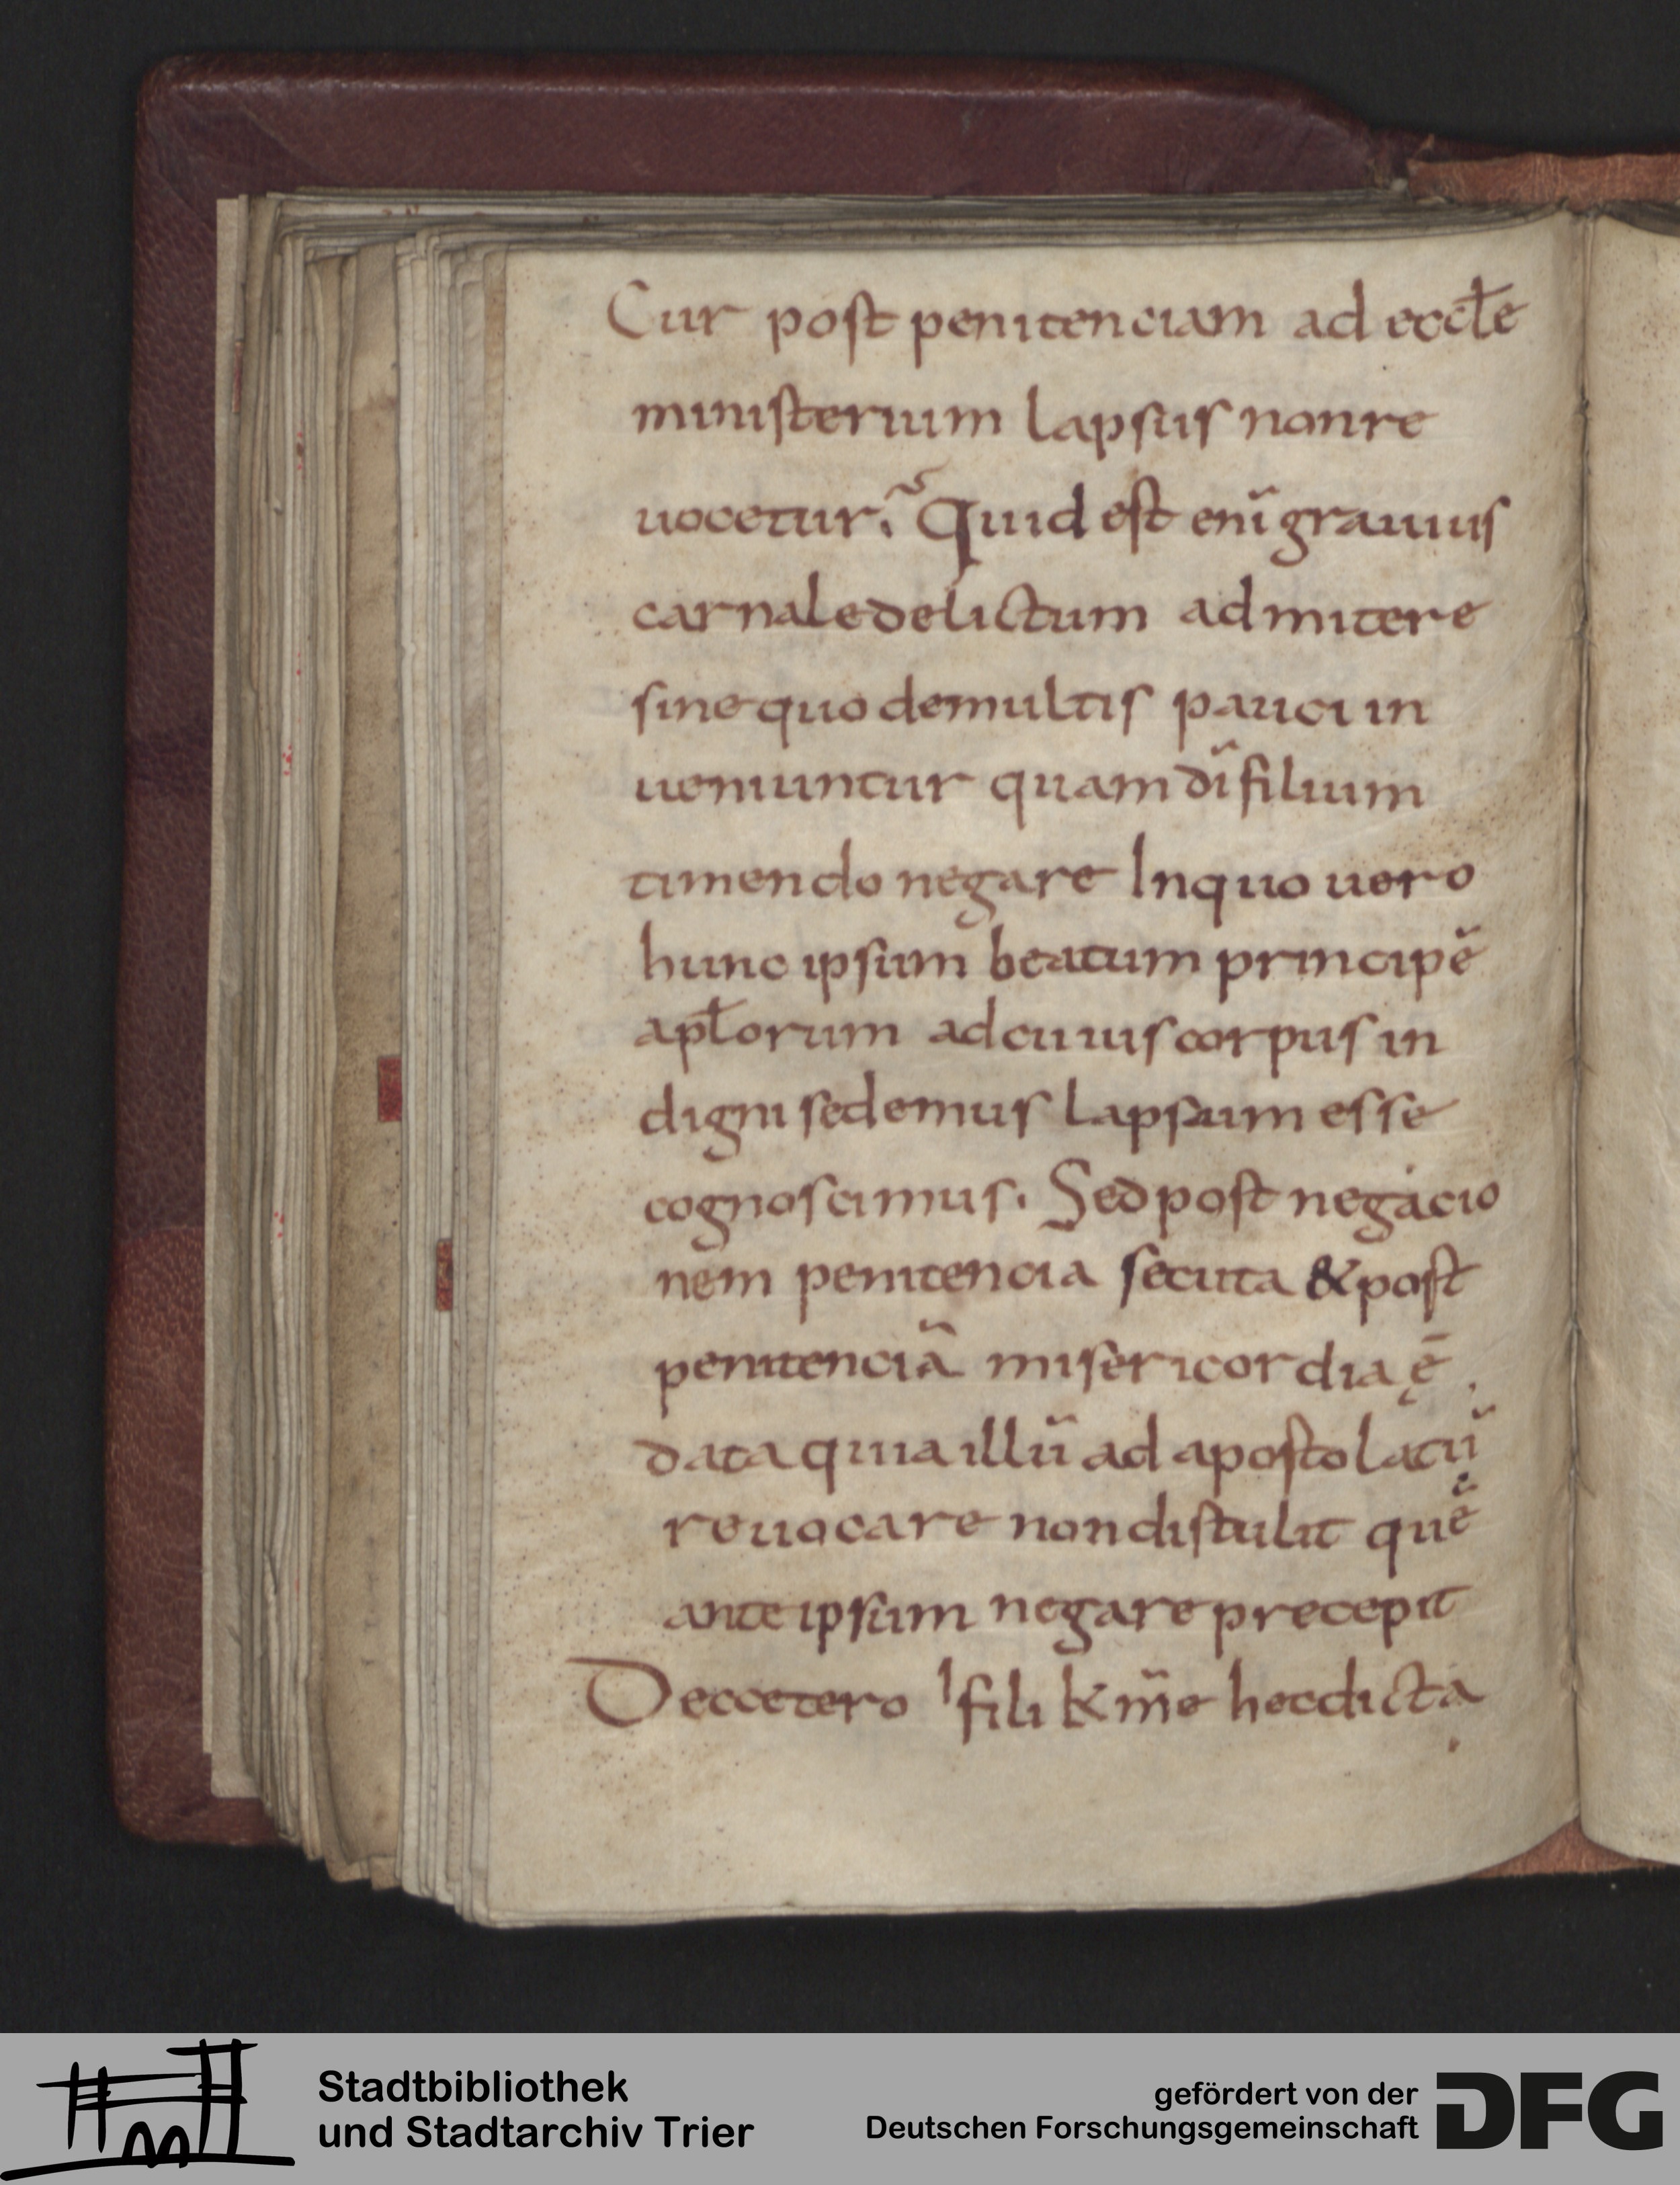 Cur post penitenciam ad eccƚe
ministerium lapsus non re
uocetur. Quid est enī grauius
carnale delictum admitere
sine quo de multis pauci in
ueniuntur quam dī filium
timendo negare In quo uero
hunc ipsum beatum principē
apƚorum ad cuius corpus in
digni sedemus lapsum esse
cognoscimus. Sed post negacio
nem penitencia secuta & post
penitenciā misericordia ę̄
data quia illū ad apostolatū
reuocare non distulit quē
ante ipsum negare precepit
De cetero fili k m̄e hec dicta
Stadtbibliothek
und Stadtarchiv Trier
gefördert von der
Deutschen Forschungsgemeinschaft
DFG